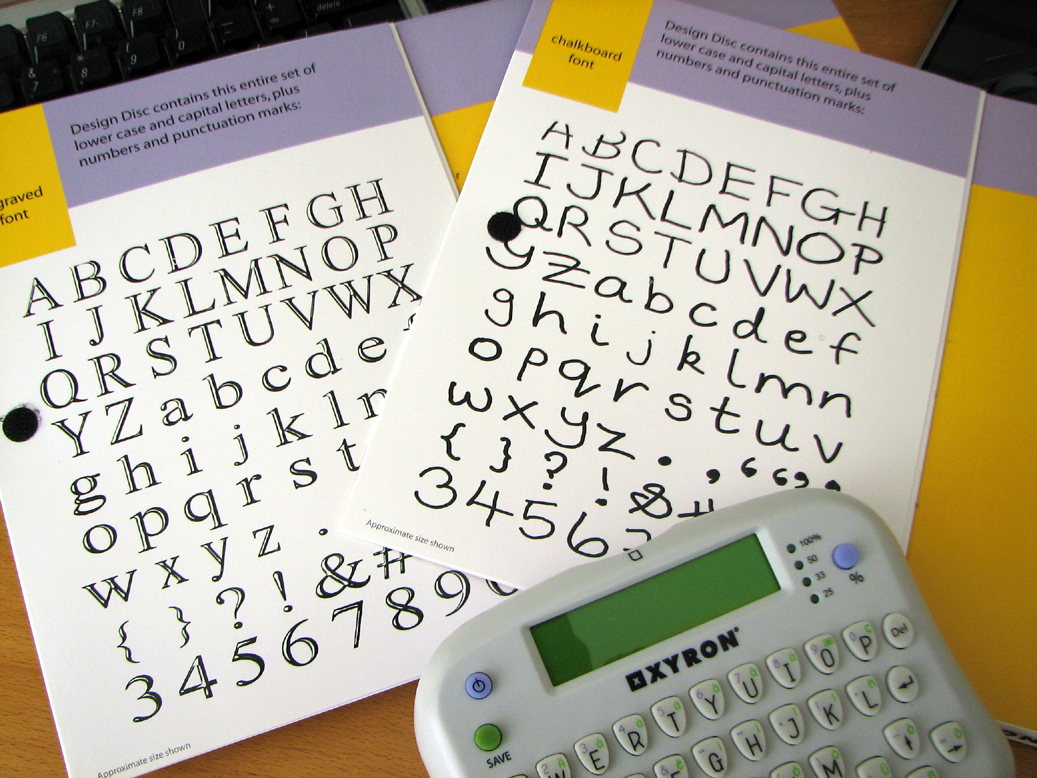 F6
F7
delete
&
7
*
8
(
9
)
0
graved
font
Design Disc contains this entire set of
lower case and capital letters, plus
numbers and punctuation marks:
A B C D E F G H
I J K L M N O P
Q R S T U V W X
Y Z a b c d e
g h i j k l
o p q r s t
w x y z .
{ } ? ! & #
3 4 5 6 7 8 9
Approximate size shown
chalkboard
font
Design Disc contains this entire set of
lower case and capital letters, plus
numbers and punctuation marks:
A B C D E F G H
I J K L M N O P
Q R S T U V W X
y z a b c d e f
g h i j k l m n
o p q r s t u v
w x y z . , “ ”
{ } ? ! & #
3 4 5 6
Approximate size shown
100%
50
33
25
%
XYRON
SAVE
E R T Y U I O P Del
G H J K L
M